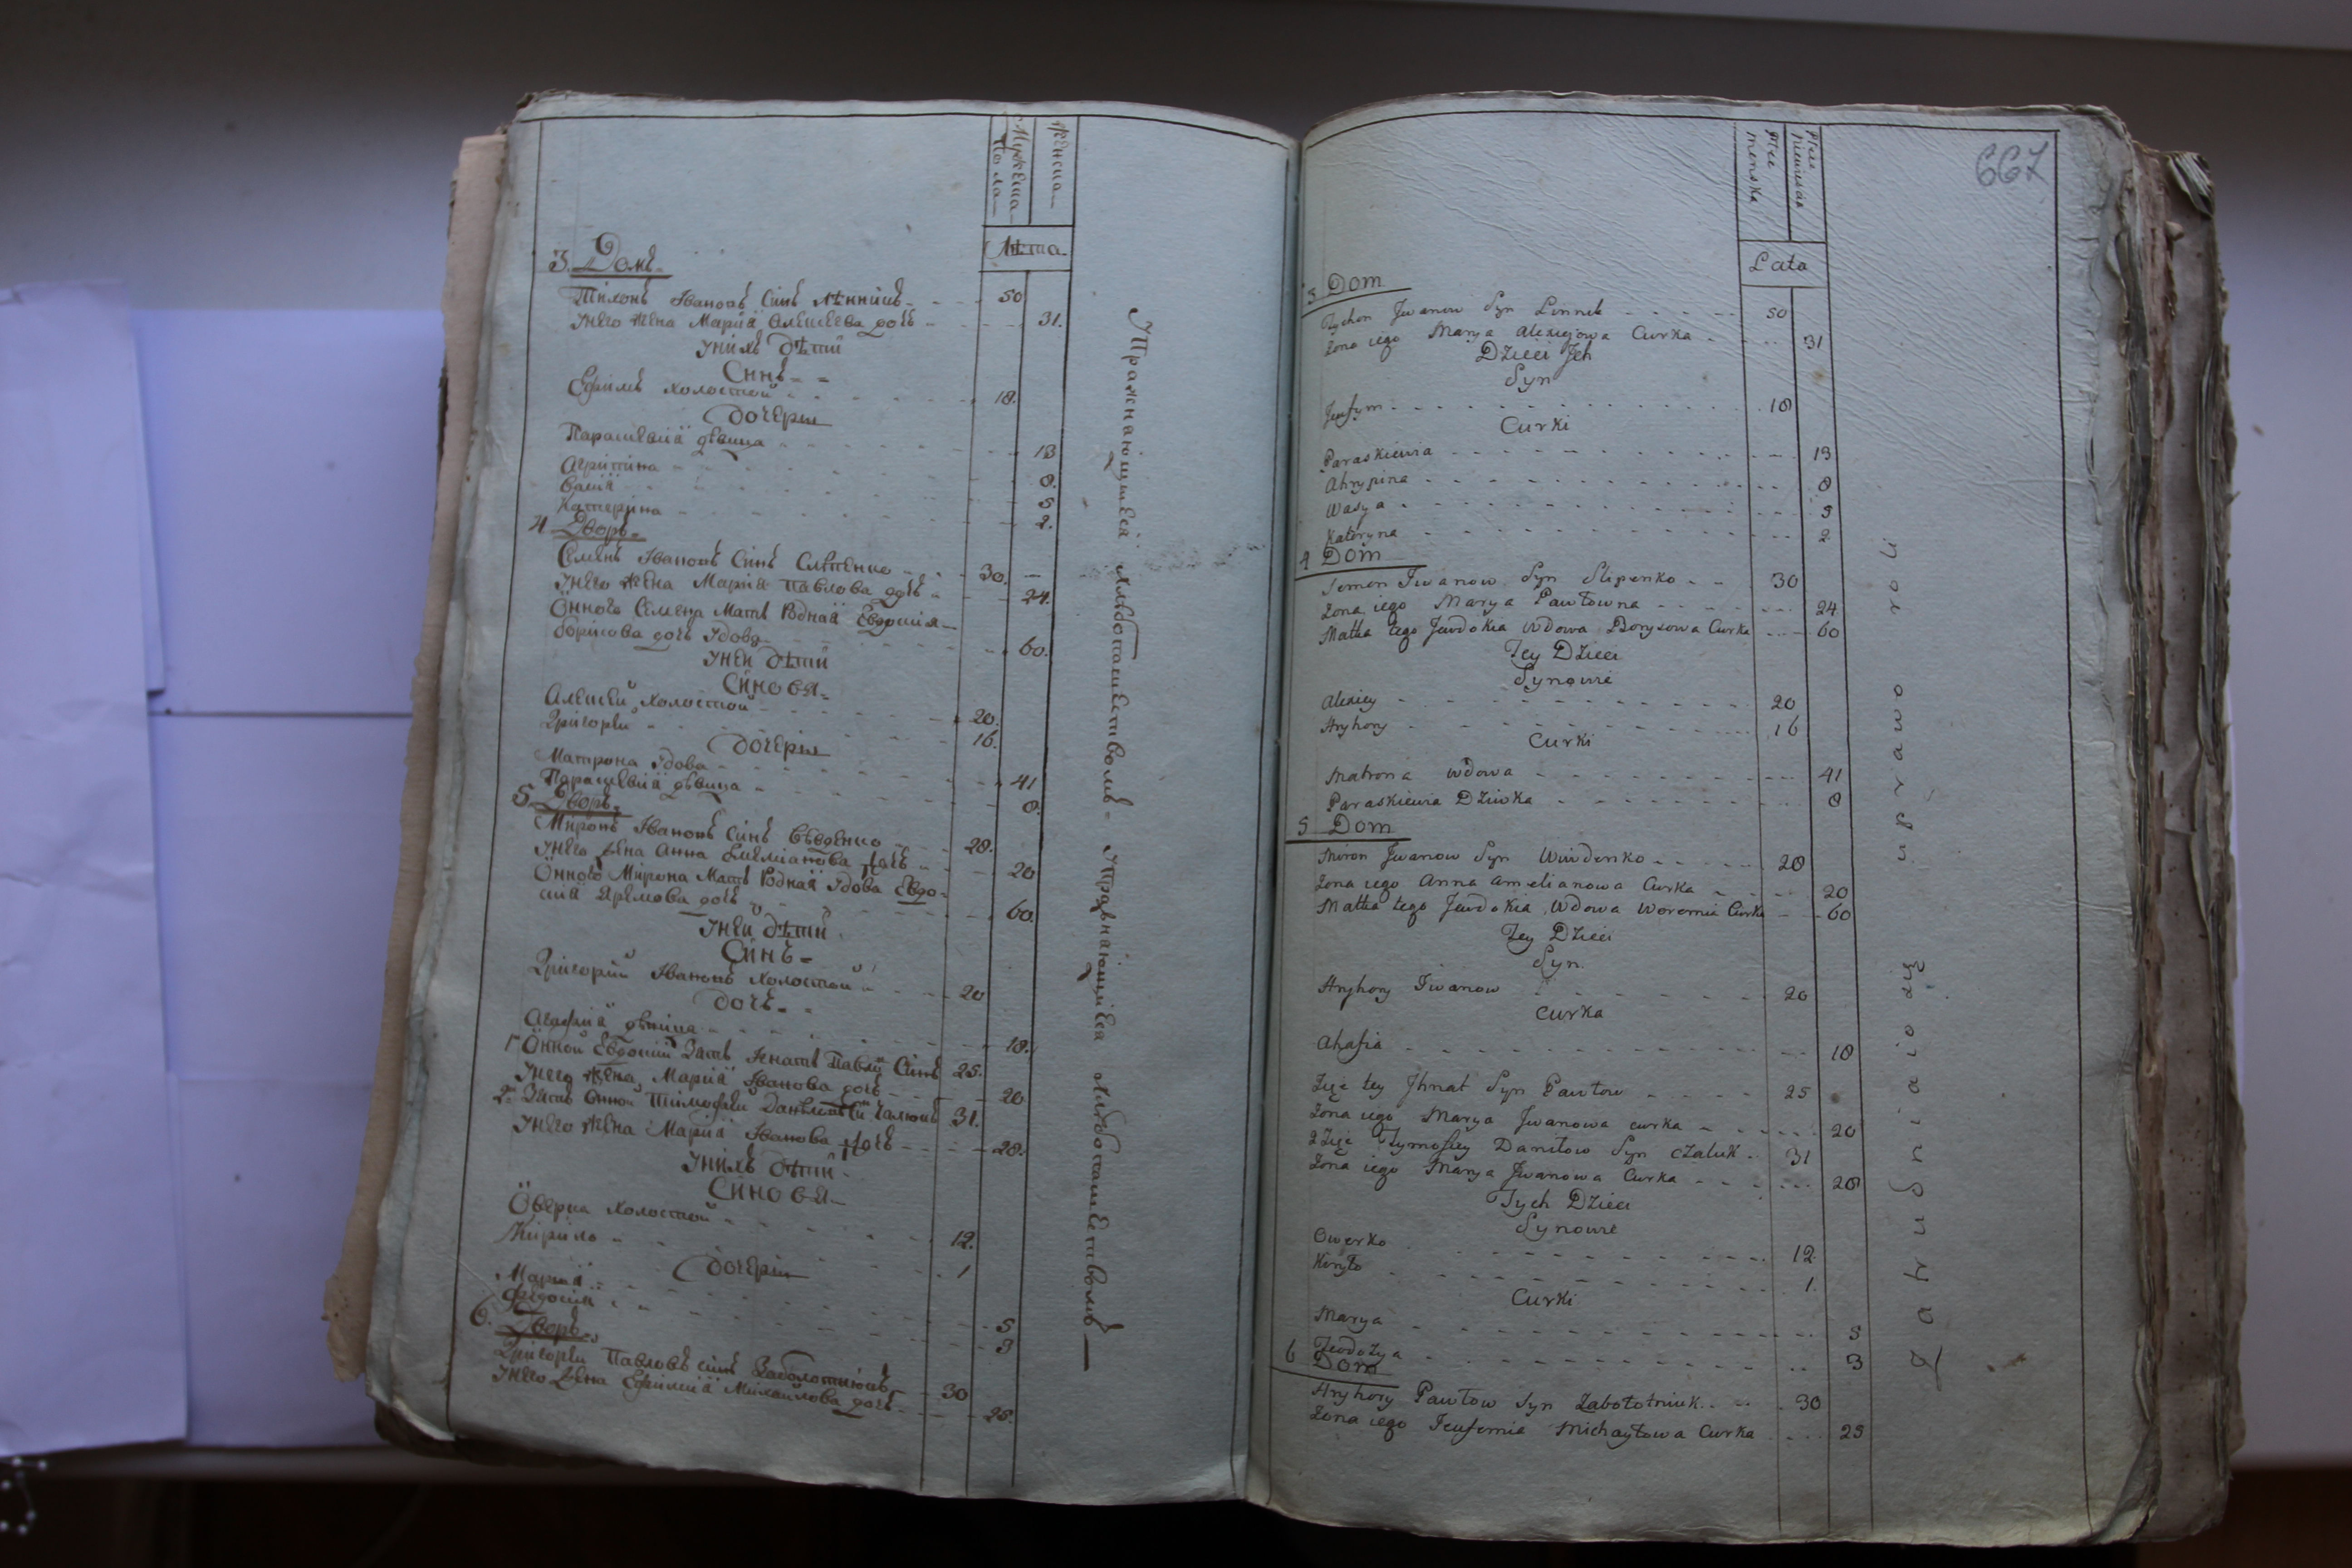 Мужеска
пола
Женска
Лѣта
3. Домъ
Тихонъ Івановъ Синъ Лѣнникъ 50
Унего жена Марія Алексеева дочь 31.
Унихъ дѣти
Синъ
Ефимъ холостой 18.
дочери
Параскевія дѣвица 13
Агріпіна 8.
Васія 5
Катерина 2.
4 Дворъ
Семенъ Івановъ Синъ Слѣпенко 30.
Унего жена Марія Павлова дочь 24.
Онного Семена Мать Родная Евдокия
борісова дочь Удова 60.
Уней дѣти
Синовя
Алексей холостой 20.
Григорей 16.
дочери
Матрона Удова 41
Параскевія дѣвица 8.
5 Дворъ
Миронъ Івановъ Синъ Вѣвденко 28.
Унего жена Анна Емеліанова дочь 20
Онного Мирона Мать Родная Удова Евдо-
кия Яремова дочь 60.
Уней дѣти
Синъ
Григорій Івановъ холостой 20
дочь
Агафия дѣвица 18.
1 Онной Евдокии Зять Ігнатъ Павлов Синъ 25.
Унего жена Марія Іванова дочь 20
2 Зять Онной Тимофей Данѣловъ Галюкъ 31.
Унего жена Марія Іванова дочь 28.
Унихъ дѣти
Синовя
Оверка холостой 12.
Кирило 1
дочери
Марія 5
Федосия 3
6. Дворъ
Григорей Павловъ синъ Заболотнюкъ 30
Унего жена Ефимія Михайлова дочь 25.
Упражнающиеся Хлѣбопашествомъ - Упражнающиеся Хлѣбопашествомъ
667
Płec
menska
Płec
niewieścia
Lata
3 Dom
Tychon Jwanow Syn Linnik 50
Zona iego Marya Alexiejowa Curka 31
Dzieci Jch
Syn
Jeufym 18
Curki
Paraskiewia 13
Ahrypina 8
Wasya 5
Kateryna 2
4 Dom
Semen Jwanow Syn Slipenko 30
Zona iego Marya Pawłowna 24
Matka tego Jewdokia Wdowa Borysowa Curka 60
Tey Dzieci
Synowie
Alexiey 20
Hryhory 16
Curki
Matrona wdowa 41
Paraskiewia Dziwka 8
5 Dom
Miron Jwanow Syn Wiwdenko 28
Zona iego Anna Amelianowa Curka 20
Matka tego Jewdokia Wdowa Woremia Curka 60
Tey Dzieci
Syn
Hryhory Iwanow 20
Curka
Ahafia 18
Zięc tey Jhnat Syn Pawłow 25
Zona iego Marya Jwanowa curka 20
2 Zięc Tymofiey Daniłow Syn Czaluk 31
Zona iego Marya Jwanowa Curka 28
Tych Dzieci
Synowie
Owerko 12
Kiryło 1.
Curki
Marya 5
Teodozya 3
6 Dom
Hryhory Pawłow Syn Zabołotniuk 30
Zona iego Jeufemia Michayłowa Curka 25
Zatrudniaio się uprawo roli